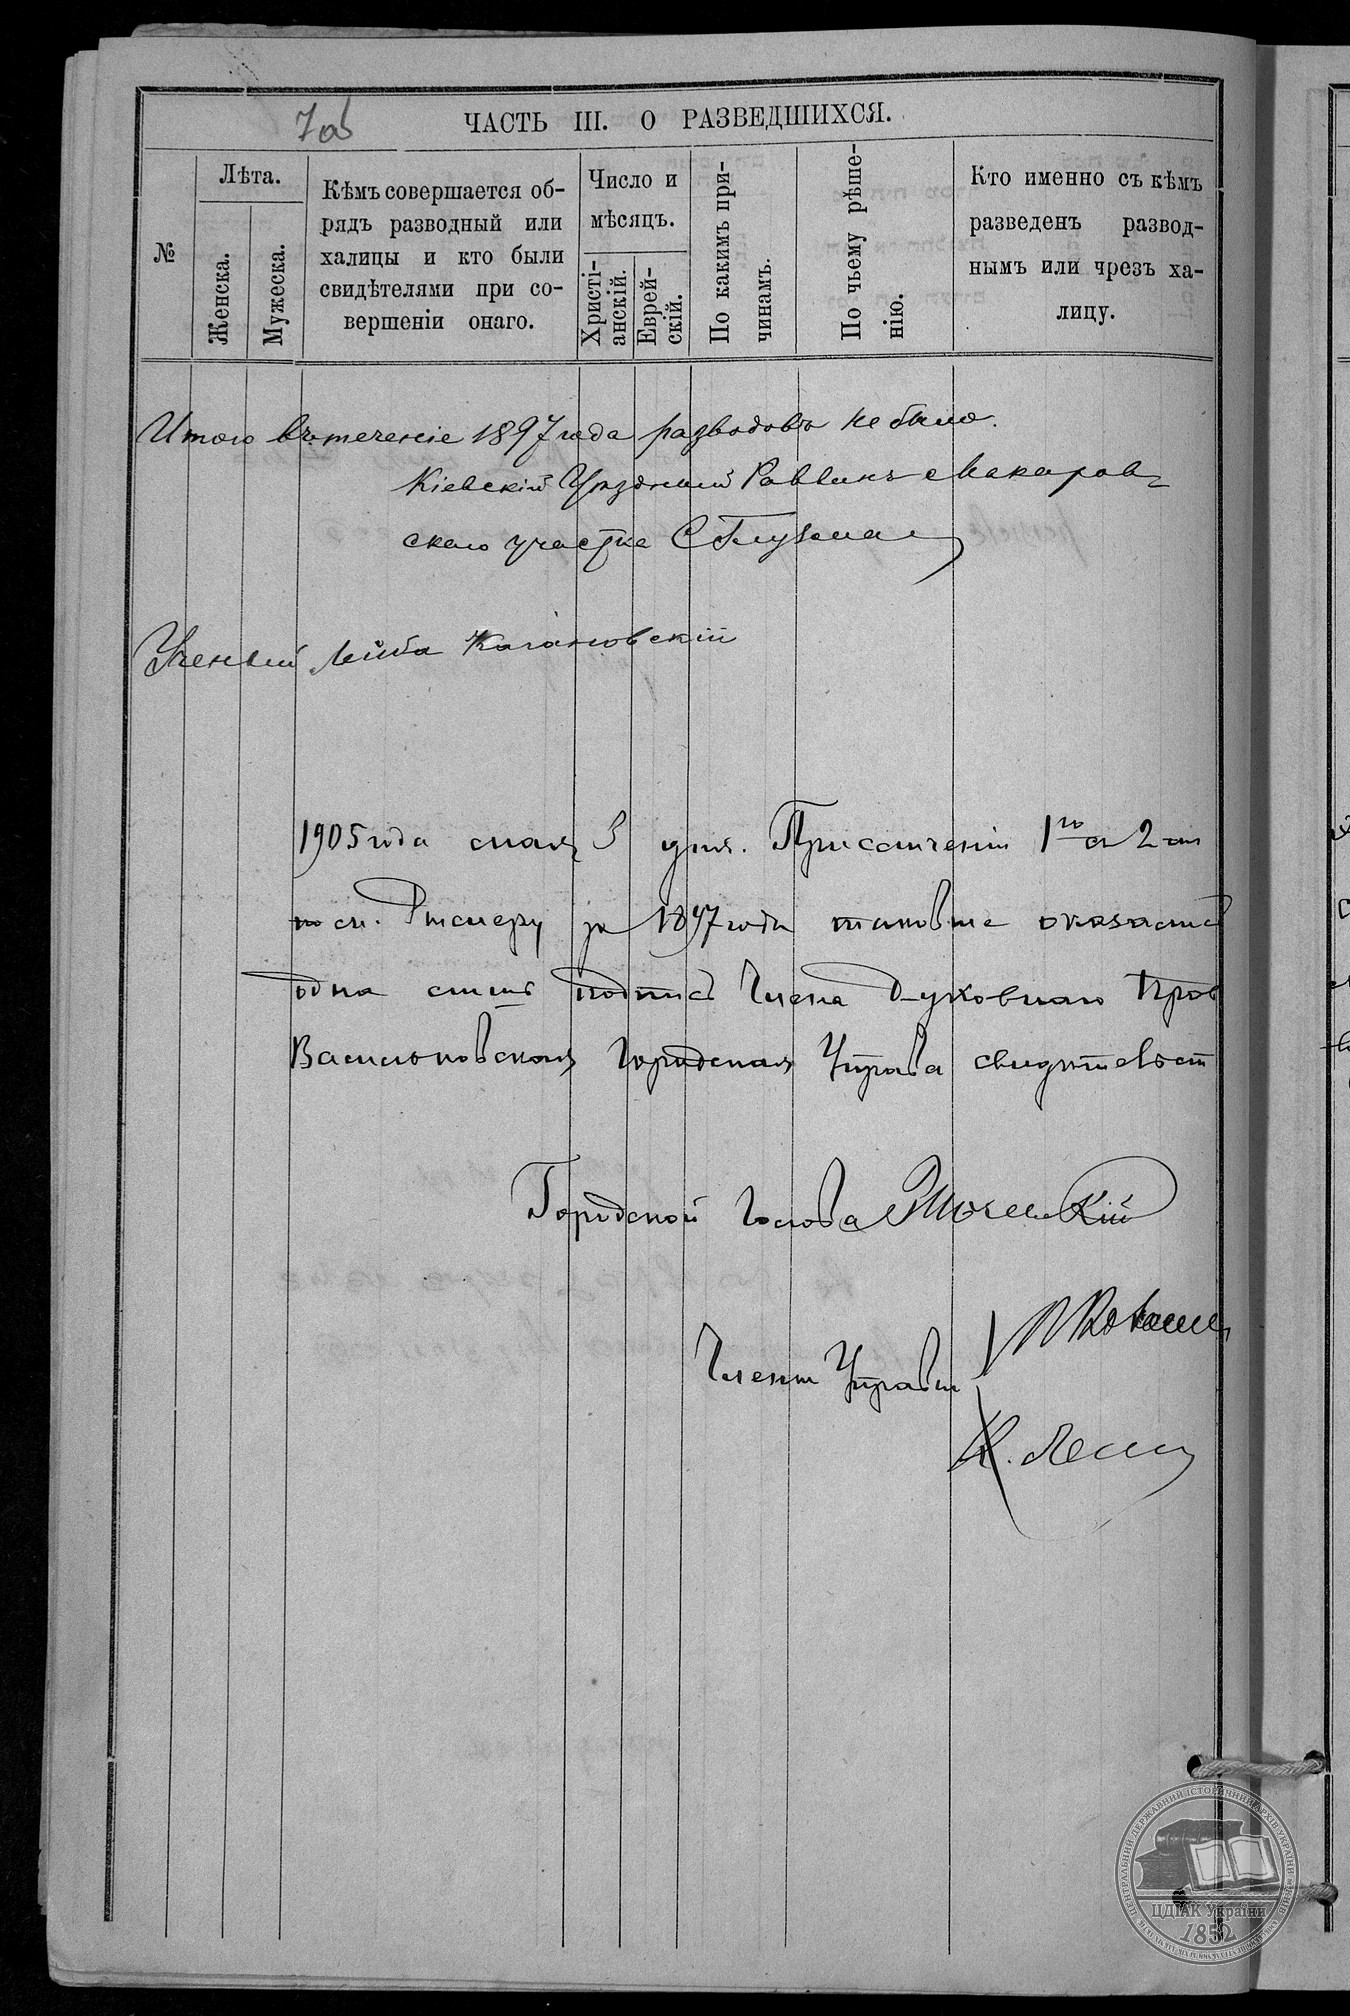 7об
ЧАСТЬ III. О РАЗВЕДШИХСЯ.
№
Лѣта.
Женска.
Мужеска.
Кѣмъ совершается об-
рядъ разводный или
халицы и кто были
свидѣтелями при со-
вершеніи онаго.
Число и
мѣсяцъ.
Христі-
анскій.
Еврей-
скій.
По какимъ при-
чинамъ.
По чьему рѣше-
нію.
Кто именно съ кѣмъ
разведенъ развод-
нымъ или чрезъ ха-
лицу.
Итого въ теченіе 1897 года разводовъ не было.
Кіевскій Уѣздный Раввинъ Макаров-
скаго участка С Глузман
Ученый Лейба Кагановскій
1905 года мая 3 дня. При сличеніи 1го и 2
экземпл. за 1897 годъ таковые оказались
одна подпись Члена Духовнаго Прав
Васильковская Городская Управа свидѣтельст
Городской Голова
Члены Управы
ЦЕНТРАЛЬНИЙ ДЕРЖАВНИЙ ІСТОРИЧНИЙ АРХІВ УКРАЇНИ
ЦДІАК України
1852